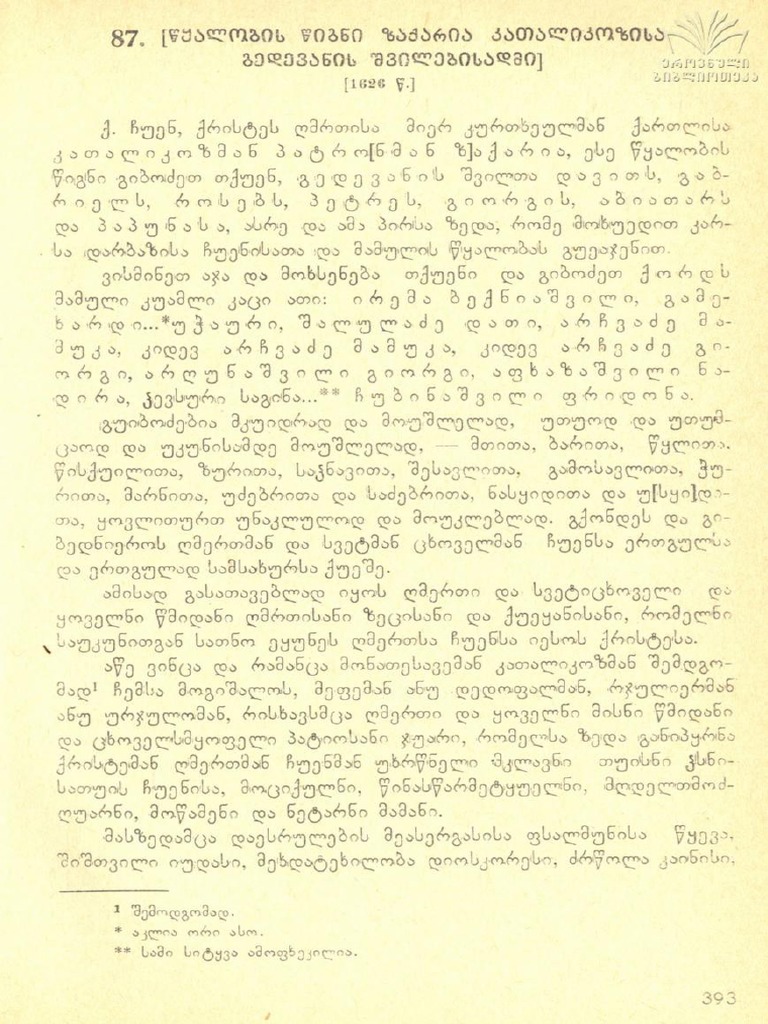 87. [წყალობის წიგნი ზაქარია კათალიკოზისა
გედევანის შვილებისადმი]
[1626 წ.]
ეროვნული
ბიბლიოთეკა
ქ. ჩუენ, ქრისტეს ღმრთისა მიერ კურთხეულმან ქართლისა
კათალიკოზმან პატრო[ნმან ზ]აქარია, ესე წყალობის
წიგნი გიბოძეთ თქუენ, გედევანის შვილთა დავითს, გაბ-
რიელს, როსებს, პეტრეს, გიორგის, აბიათარს
და პაპუნასა, ასრე და ამა პირსა ზედა, რომე მოხუედით კარ-
სა დარბაზისა ჩუენისათა და მამულის წყალობას გუეაჯენით.
ვისმინეთ აჯა და მოხსენება თქუენი და გიბოძეთ ქორდს
მამული კუამლი კაცი ათი: ირემა ბექნიაშვილი, გამე-
ხარდი...*უჭაური, შალულაძე დათი, არჩვაძე მა-
მუკა, კიდევ არჩვაძე მამუკა, კიდევ არჩვაძე გი-
ორგი, არღუნაშვილი გიორგი, აფხაზაშვილი ნა-
დირა, ჴევსური საგინა...** ჩუბინაშვილი ფრიდონა.
გუიბოძებია მკუიდრად და მოუშლელად, უთუოდ და უთუმ-
ცაოდ და უკუნისამდე მოუშლელად, — მთითა, ბარითა, წყლითა.
წისქუილითა, ზურითა, საჴნავითა, შესავლითა, გამოსავლითა, ჭუ-
რითა, მარნითა, უძებრითა და საძებრითა, ნასყიდითა და უ[სყი]დი-
თა, ყოვლითურთ უნაკლულოდ და მოუკლებლად. გქონდეს და გი-
ბედნიეროს ღმერთმან და სვეტმან ცხოველმან ჩუენსა ერთგულსა
და ერთგულად სამსახურსა ქუეშე.
ამისად გასათავებლად იყოს ღმერთი და სვეტიცხოველი და
ყოველნი წმიდანი ღმრთისანი ზეცისანი და ქუეყანისანი, რომელნი
საუკუნითგან სათნო ეყუნეს ღმერთსა ჩუენსა იესოს ქრისტესა.
აწე ვინცა და რამანცა მონათესავემან კათალიკოზმან შემდგო-
მად¹ ჩემსა მოგიშალოს, მეფემან ანუ დედოფალმან, რჯულიერმან
ანუ ურჯულომან, რისხავსმცა ღმერთი და ყოველნი მისნი წმიდანი
და ცხოველსმყოფელი პატიოსანი ჯუარი, რომელსა ზედა განიპყრნა
ქრისტემან ღმერთმან ჩუენმან უხრწნელი მკლავნი თუისნი ჴსნი-
სათუის ჩუენისა, მოციქულნი, წინასწარმეტყუელნი, მღდელთმოძ-
ღუარნი, მოწამენი და ნეტარნი მამანი.
მასზედამცა დაესრულების მეასერგასისა ფსალმუნისა წყევა,
შიშთვილი იუდასი, მეხდატეხილობა დიოსკორესი, ძრწოლა კაინისი,
¹ შემოდგომად.
* აკლია ორი ასო.
** სამი სიტყვა ამოფხეკილია.
393